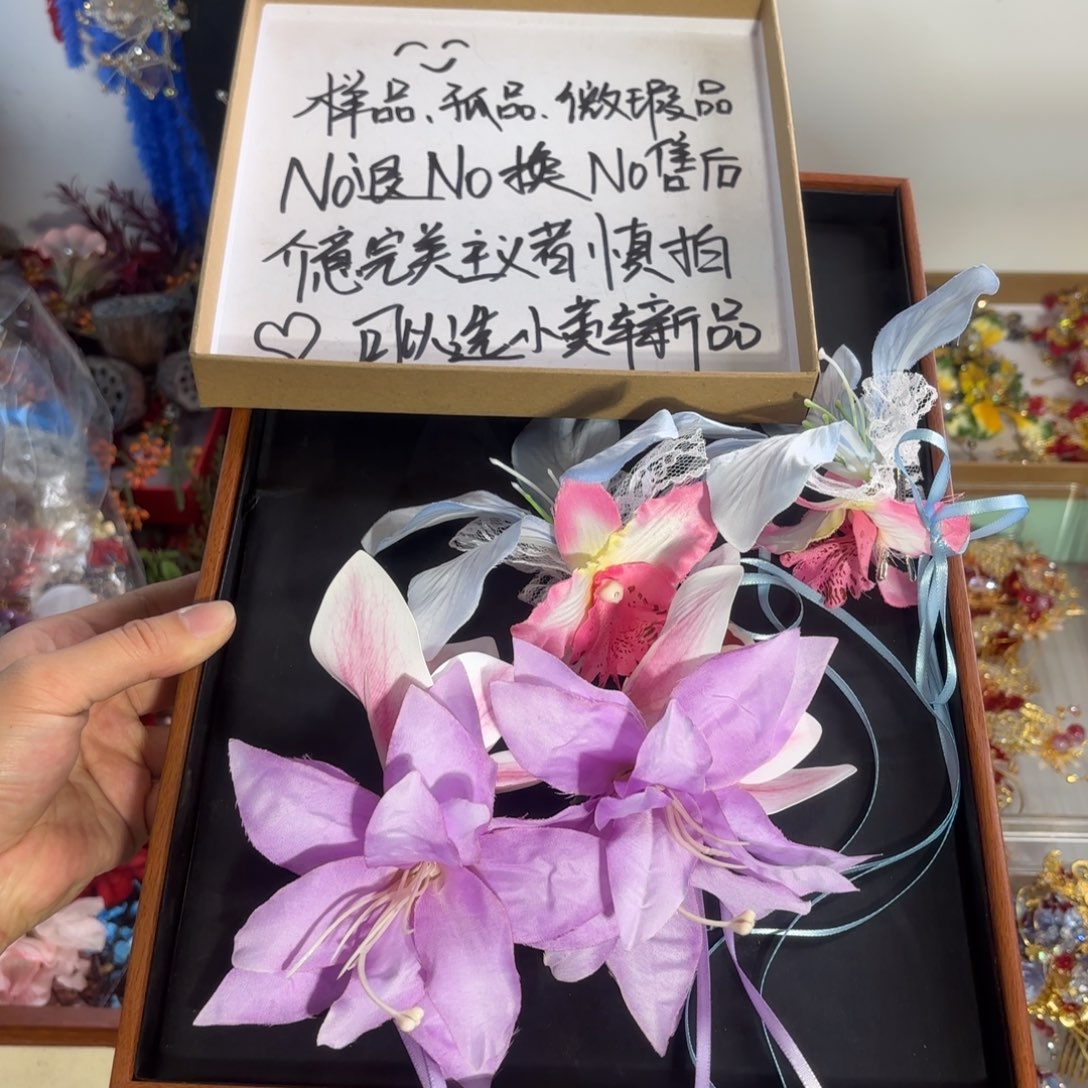 样品、孤品、微瑕品
No退 No换 No售后
介意完美主义者慎拍
♡ 可以选小卖车新品